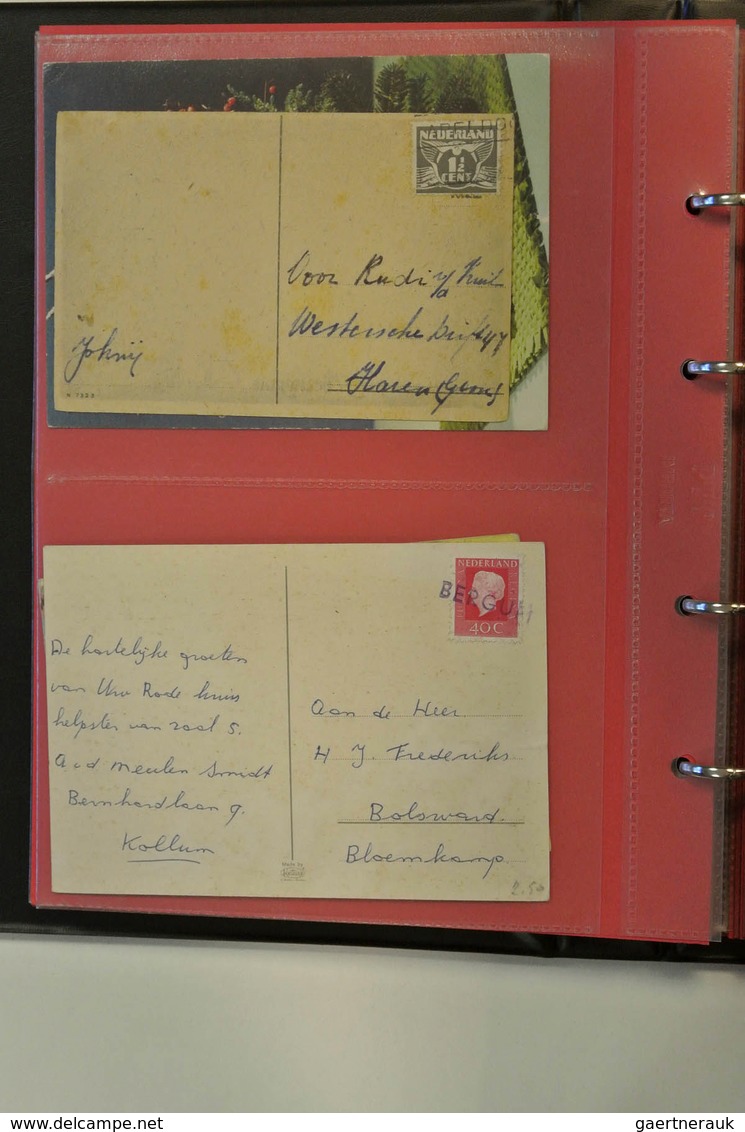 NEDERLAND
1½
CENT
Voor Rudi v/d
Westersche Drift 47
Johnij
Haren (Gron)
NEDERLAND
BERGUM
40C
De hartelijke groeten
van Uw Rode kruis
helpster van zaal 5.
A v d Meulen Smidt
Bernhardlaan 9.
Kollum
Aan de Heer.
H J. Frederiks
Bolsward.
Bloemkamp.
Made by
2.50
gaertnerauk